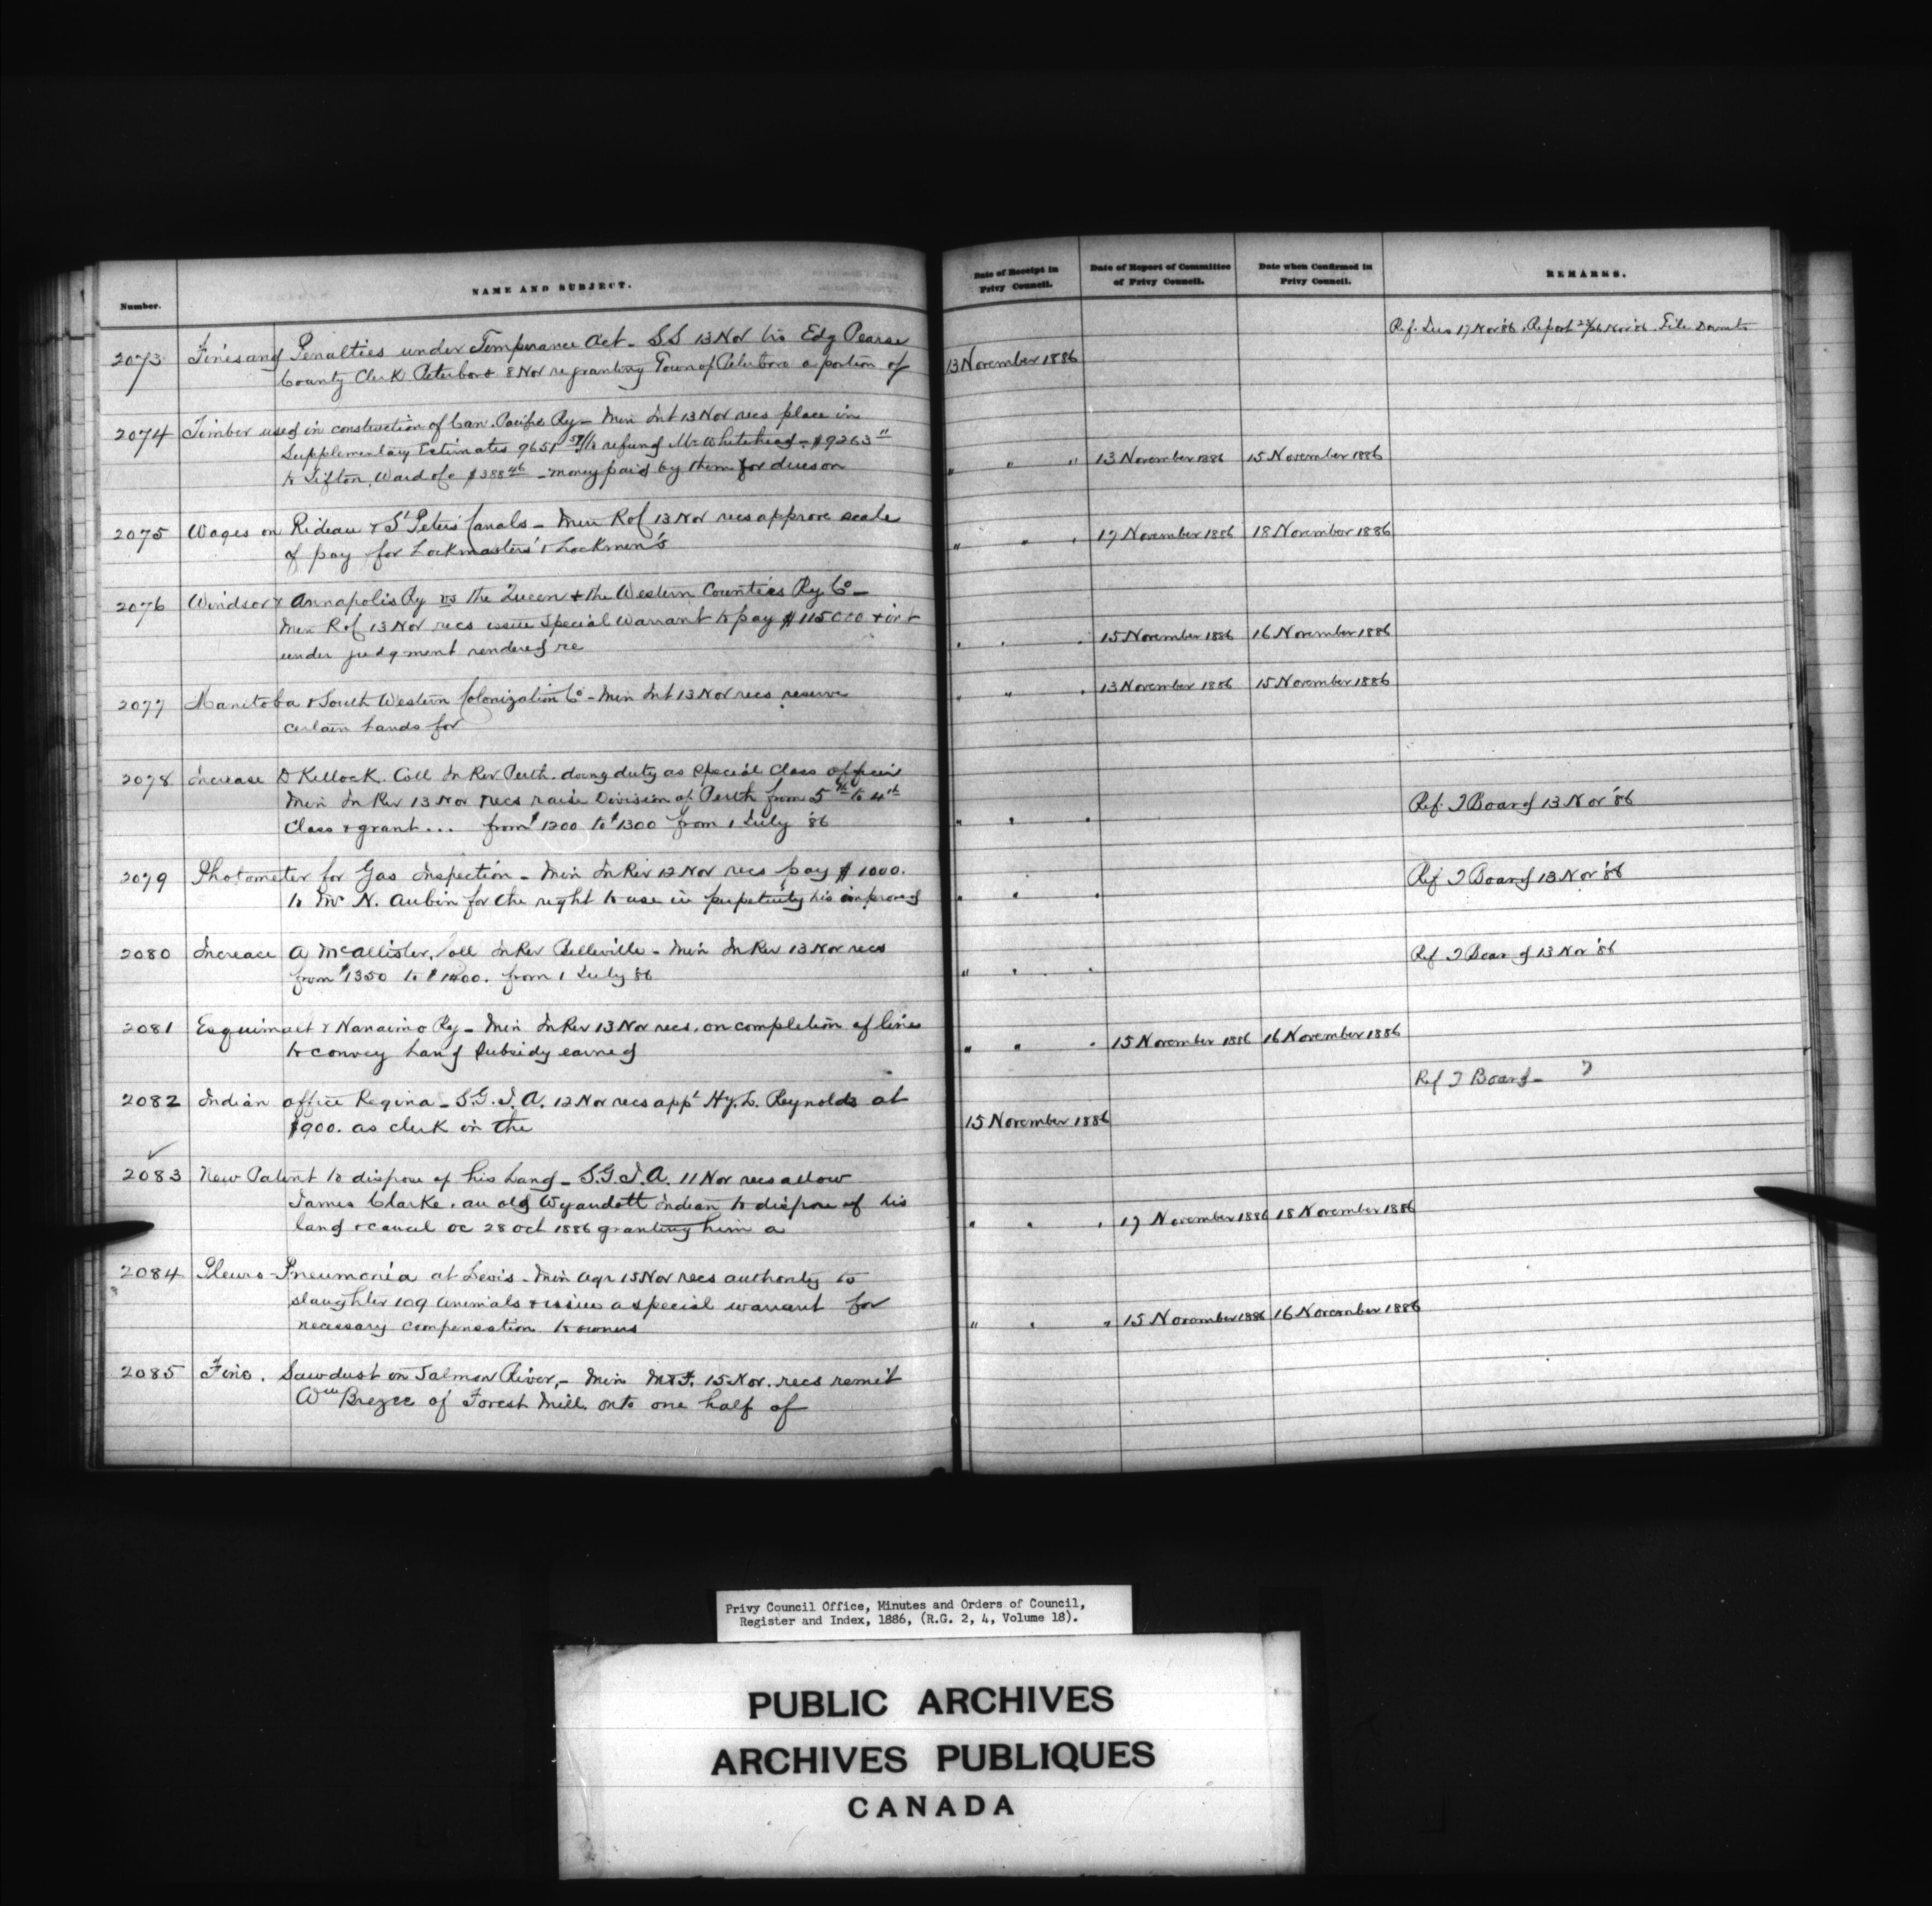 Number.
NAME AND SUBJECT.
Date of Receipt in Privy Council.
Date of Report of Committee of Privy Council.
Date when Confirmed in Privy Council.
REMARKS.
Ref. Jus 17 Nov '86. Report 25/26 Nov '86. File
2073 Fines and Penalties under Temperance Act - SS 13 Nov Edg Pearse
County Clerk Peterboro 8 Nov re granting Town of Peterboro a portion of
13 November 1886
2074 Timber used in construction of Can. Pacific Ry - Min Int 13 Nov recs place in
Supplementary Estimates 9651 to refund Mr Whitehead - $9263
to Sifton, Ward & Co $388 46 - money paid by them for dues on
" " " 13 November 1886 15 November 1886
2075 Wages on Rideau & St Peters Canals - Min R&C 13 Nov recs approve scale
of pay for Lockmasters' & Lockmen's
" " " 17 November 1886 18 November 1886
2076 Windsor & Annapolis Ry vs The Queen & the Western Counties Ry Co -
Min R&C 13 Nov recs issue special Warrant to pay $115000 & int
under judgment rendered re
" " " 15 November 1886 16 November 1886
2077 Manitoba & South Western Colonization Co - Min Int 13 Nov recs reserve
certain lands for
" " " 13 November 1886 15 November 1886
2078 Increase D Kellock. Coll In Rev Perth. doing duty as special class officer
Min In Rev 13 Nov recs raise Division of Perth from 5th to 4th
Class & grant ... from $1200 to $1300 from 1 July '86
" " " Ref. T Board 13 Nov '86
2079 Photometer for Gas Inspection - Min In Rev 12 Nov recs pay $1000.
to Mr N. Aubin for the right to use in perpetuity his improved
" " " Ref T Board 13 Nov '86
2080 Increace A McAllister, Coll In Rev Belleville - Min In Rev 13 Nov recs
from $1350 to $1400. from 1 July 86
" " " Ref T Board 13 Nov '86
2081 Esquimalt & Nanaimo Ry - Min In Rev 13 Nov recs. on completion of lines
to convey Land Subsidy earned
" " " 15 November 1886 16 November 1886
2082 Indian office Regina - S.G.I.A. 12 Nov recs appt Hy. L. Reynolds at
$900. as clerk in the
15 November 1886 Ref T Board - ?
2083 New Patent to dispose of his Land - S.G.I.A. 11 Nov recs allow
James Clarke, an old Wyandott Indian to dispose of his
land & cancel OC 28 Oct 1886 granting him a
" " " 17 November 1886 18 November 1886
2084 Pleuro-Pneumonia at Levis - Min Agr 15 Nov recs authority to
slaughter 109 animals & issue a special warrant for
necessary compensation to owners
" " " 15 November 1886 16 November 1886
2085 Fine. Sawdust in Salmon River, - Min M&F. 15 Nov. recs remit
Wm Brezee of Forest Mill, Onto one half of
Privy Council Office, Minutes and Orders of Council,
Register and Index, 1886, (R.G. 2, 4, Volume 18).
PUBLIC ARCHIVES
ARCHIVES PUBLIQUES
CANADA